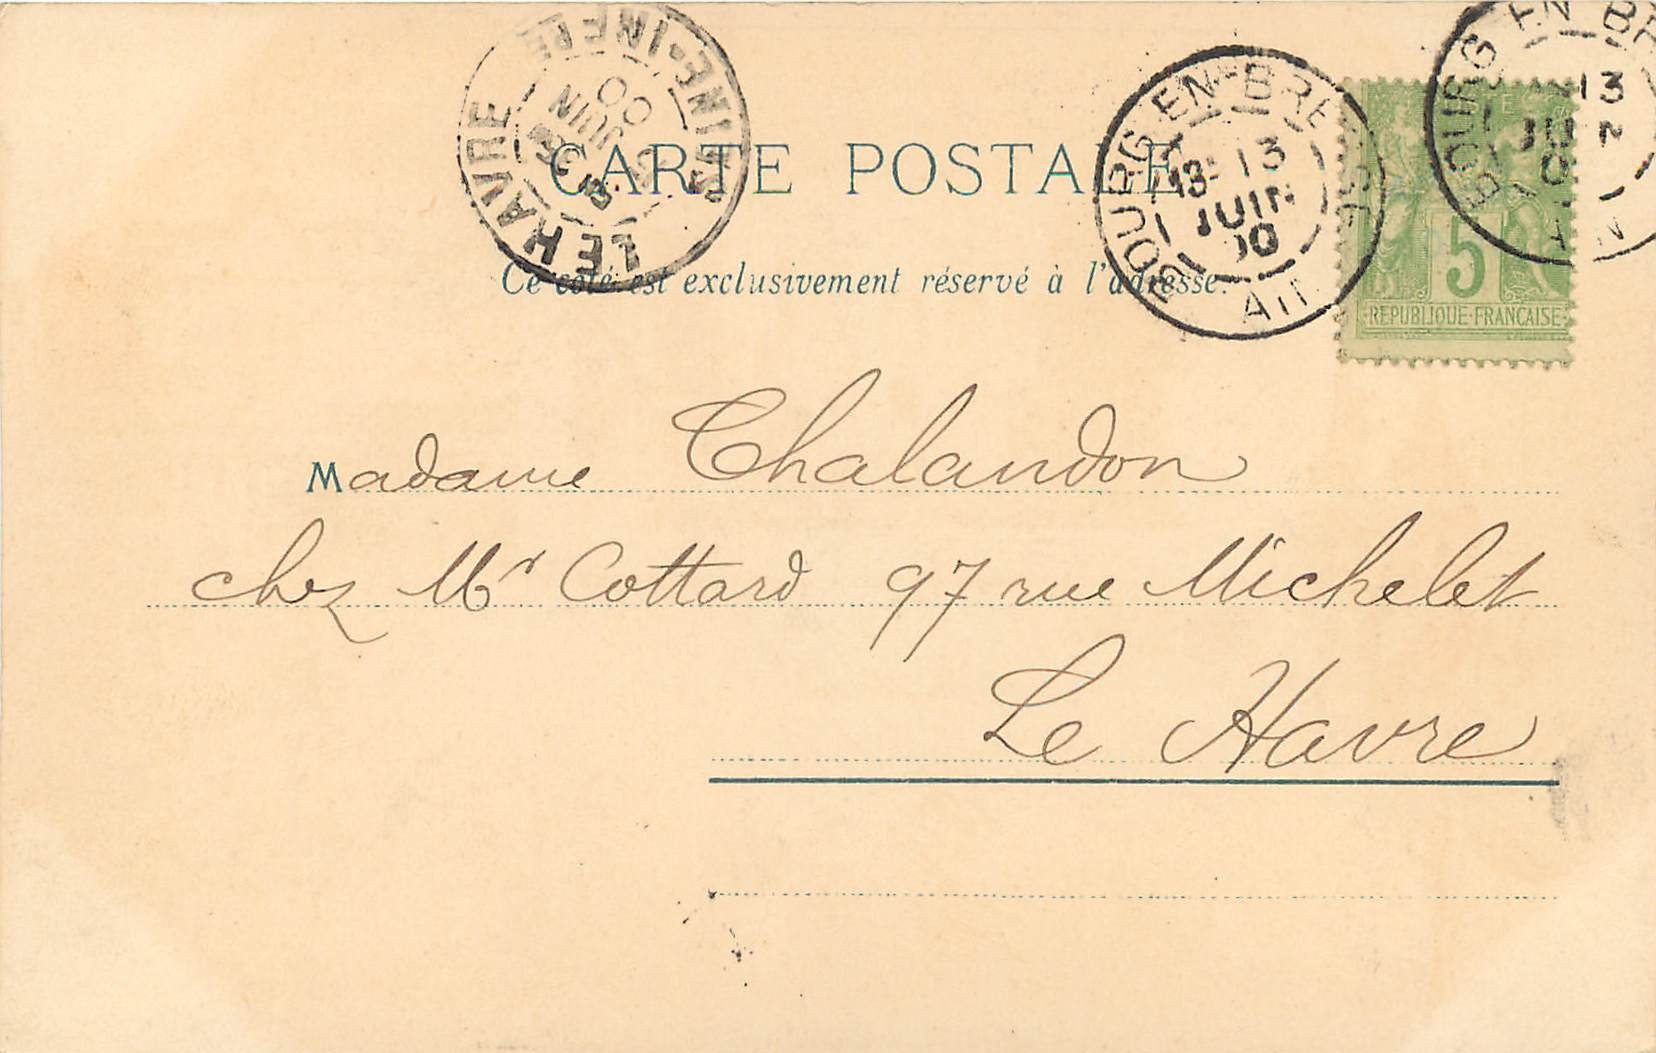 CARTE POSTALE
Ce côté est exclusivement réservé à l'adresse.
LE HAVRE
SEINE-INFRE
JUIN
00
BOURG-EN-BRESSE
13
JUIN
00
AIN
BOURG-EN-BR
13
AIN
5
REPUBLIQUE·FRANÇAISE
Madame Chalandon
chez Mr Cottard 97 rue Michelet
Le Havre